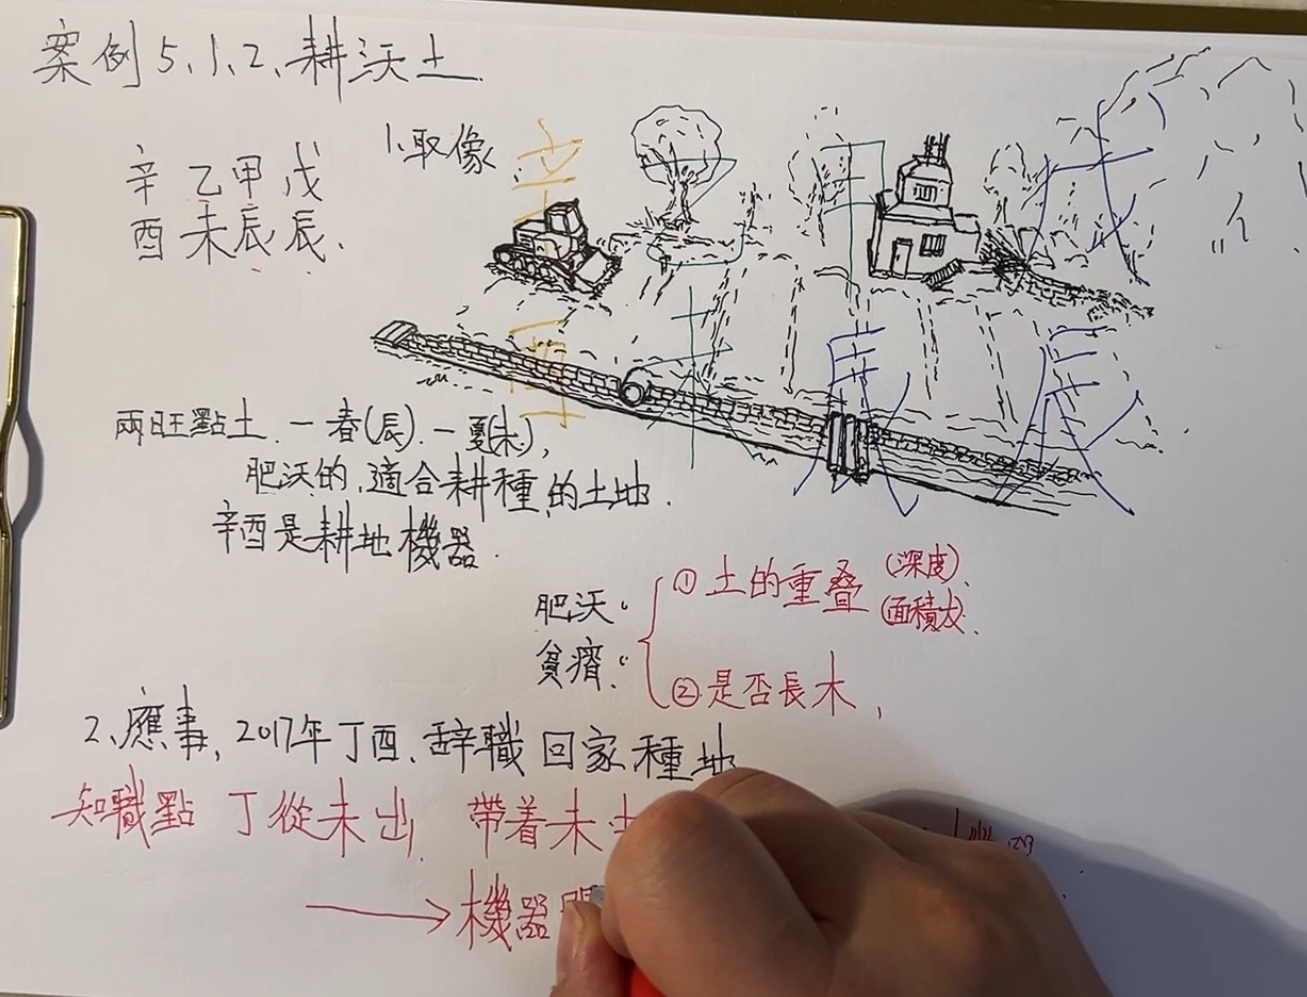 案例5、1、2、耕沃土.
1、取像、
辛乙甲戊
酉未辰辰.
辛乙甲戊
酉未辰辰
兩旺點土.一春(辰).一夏(未),
肥沃的,適合耕種的土地.
辛酉是耕地機器.
肥沃:
貧瘠:
①土的重叠(深度)、
(面積大)、
②是否長木,
2、應事,2017年丁酉、辞職回家種地
知識點 丁從未出, 帶着未土
→機器